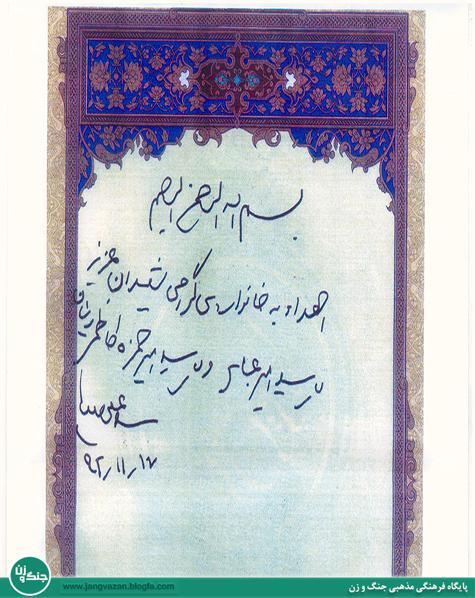 بسم الله الرحمن الرحیم
اهداء به خانواده‌ی گرامی شهیدان عزیز
سید امیر عباس و سید امیر حمزه کاظمی
سید علی خامنه‌ای
۹۲٫۱۱٫۱۷
جنگ و زن
www.jangvazan.blogfa.com
پایگاه فرهنگی مذهبی جنگ و زن